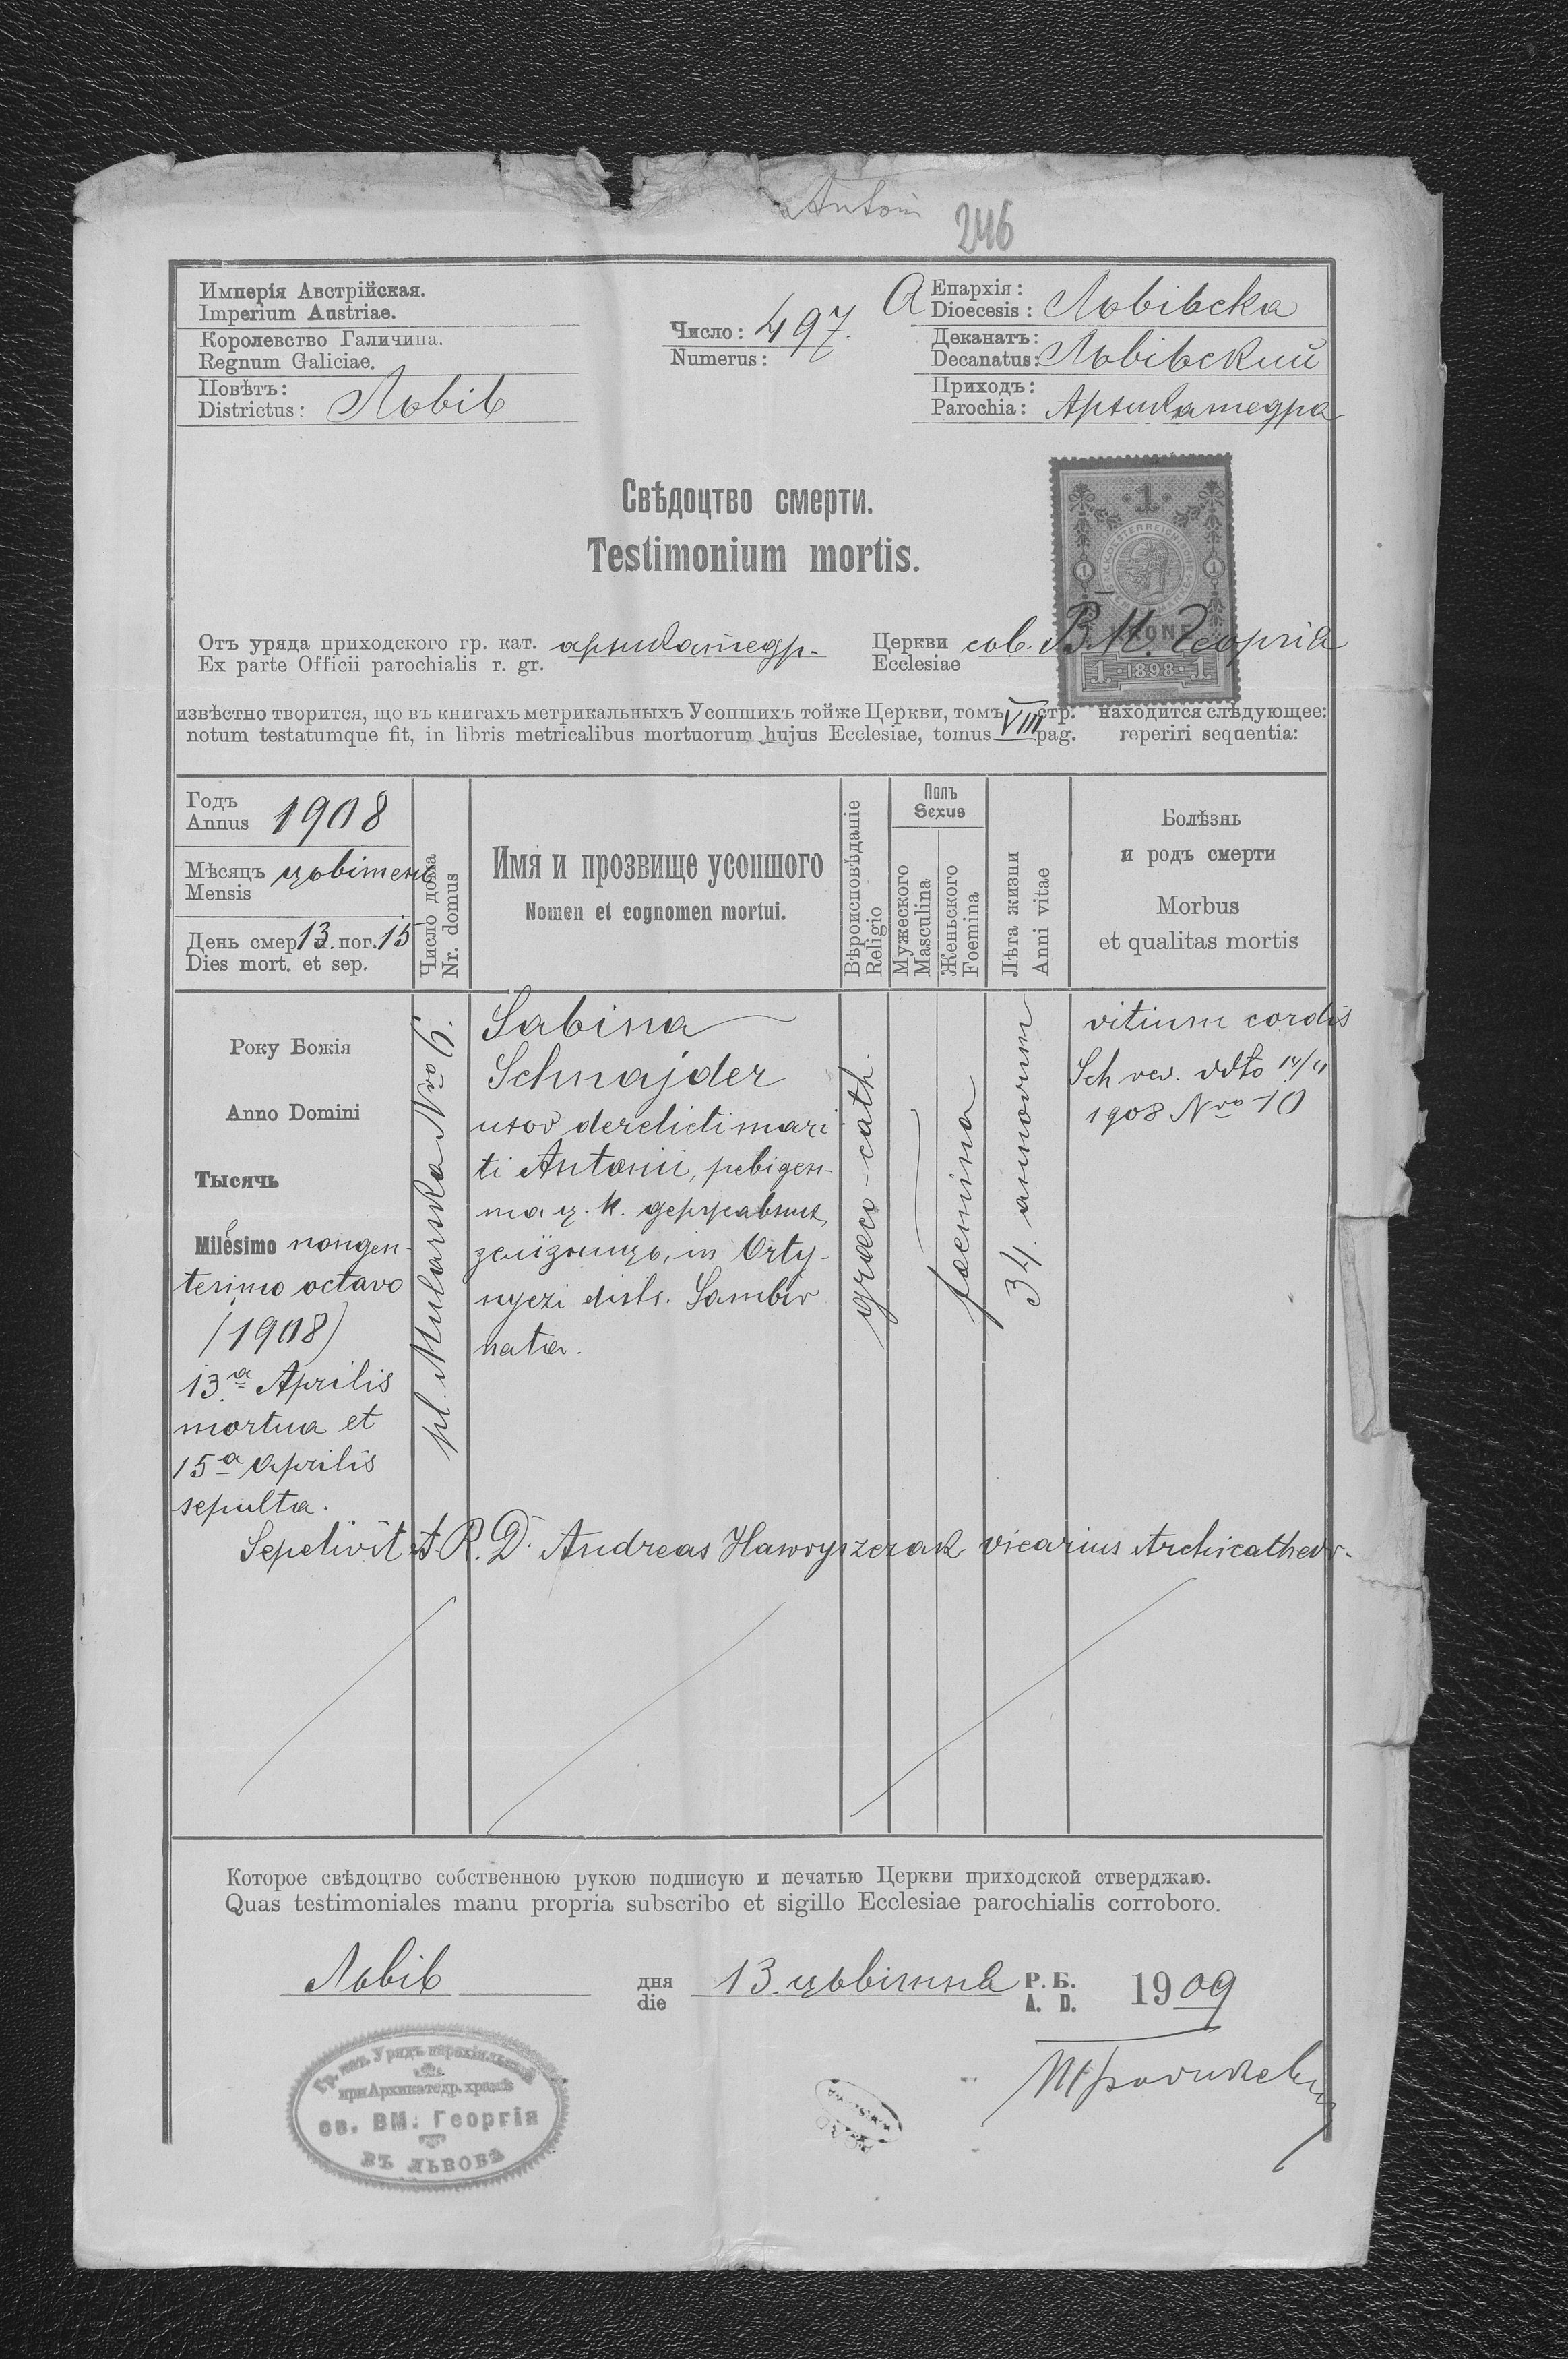 Antoni
246
Имперія Австрійская.
Imperium Austriae.
Королевство Галичина.
Regnum Galiciae.
Повѣтъ:
Districtus: Львів
Число: 497.
Numerus:
Епархія:
Dioecesis: Львівска
Деканатъ:
Decanatus: Львівский
Приходъ:
Parochia: Архикатедра
Свѣдоцтво смерти.
Testimonium mortis.
1
1 KRONE 1
1 · 1898 · 1
Отъ уряда приходского гр. кат. архикатедр. Церкви соб. В. М. Георгія
Ex parte Officii parochialis r. gr. Ecclesiae
извѣстно творится, що въ книгахъ метрикальныхъ Усопшихъ тойже Церкви, томъ VIII стр. находится слѣдующее:
notum testatumque fit, in libris metricalibus mortuorum hujus Ecclesiae, tomus pag. reperiri sequentia:
Годъ
Annus 1908
Мѣсяцъ цьвітень
Mensis
День смер. 13. пог. 15
Dies mort. et sep.
Число дома
Nr. domus
Имя и прозвище усопшого
Nomen et cognomen mortui.
Вѣроисповѣданіе
Religio
Полъ
Sexus
Мужеского
Masculina
Женьского
Foemina
Лѣта жизни
Anni vitae
Болѣзнь
и родъ смерти
Morbus
et qualitas mortis
Року Божія
Anno Domini
Тысячь
Milésimo nongen-
tesimo octavo
(1908)
13.ª Aprilis
mortua et
15ª Aprilis
sepulta.
pl. Mularska Nro 6.
Sabina
Schnajder
uxor derelicti mari
ti Antonii,
ц. к. державних
зелїзниць, in Orty-
nyczi distr. Sambir
nata.
graeco-cath.
foemina
34. annorum
vitium cordis
Sch. rev. ddto 14/4
1908 Nro 10
Sepelivit A. R. D. Andreas Hawryszczak vicarius Archicathedr.
Которое свѣдоцтво собственною рукою подписую и печатью Церкви приходской стверджаю.
Quas testimoniales manu propria subscribo et sigillo Ecclesiae parochialis corroboro.
Львів дня 13. цьвітня Р. Б. 1909
die A. D.
Гр. кат. Урядъ парохіяльный
при Архикатедр. храмѣ
св. ВМ. Георгія
въ Львовѣ